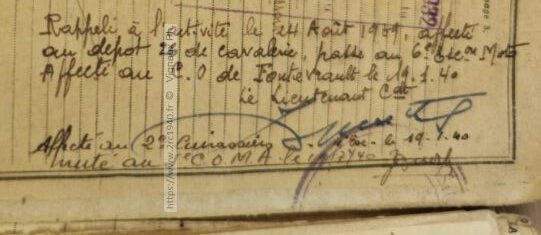 Rappelé à l'activité le 24 Août 1939, affecté
au dépôt 2 de cavalerie, passe au 6e Esc.on Moto
Affecté au O de Fontevrault le 19.1.40
Le Lieutenant Cdt
Affecté au 2e Cuirassiers Esc. le 19.1.40
muté au C.O.M.A. le
https://www.2rc1940.fr ©